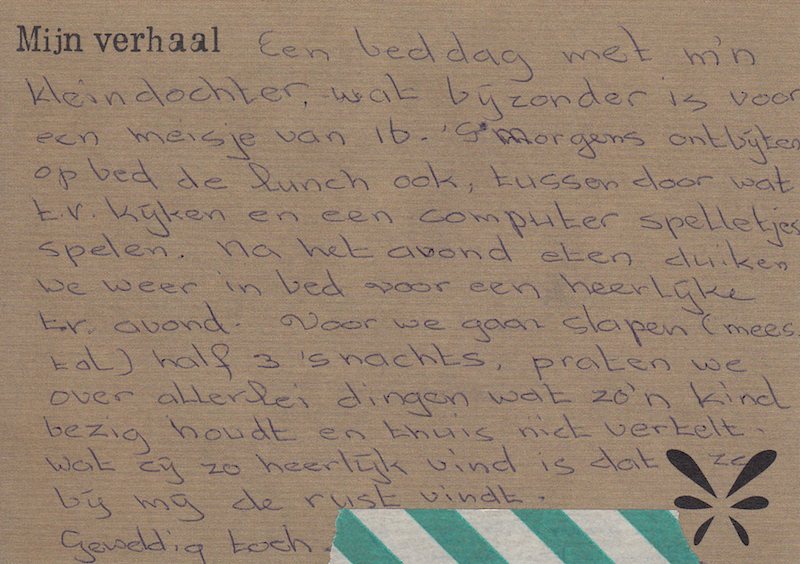 Mijn verhaal Een bed dag met m'n
kleindochter, wat bijzonder is voor
een meisje van 16. 's Morgens ontbijten
op bed de lunch ook, tussen door wat
t.v. kijken en een computer spelletjes
spelen. Na het avond eten duiken
we weer in bed voor een heerlijke
t.v. avond. Voor we gaan slapen (mees
tal) half 3 's nachts, praten we
over allerlei dingen wat zo'n kind
bezig houdt en thuis niet vertelt.
wat zij zo heerlijk vind is dat ze
bij mij de rust vindt.
Geweldig toch.